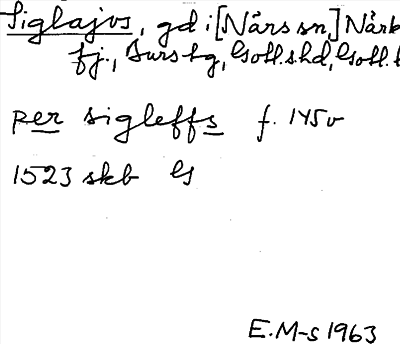 Siglajvs, gd i [Närs sn] Närk
fj., Burs tg, Gotl.s hd, Gotl. l
per sigleffs f. 145v
1523 skb G
E.M-s 1963